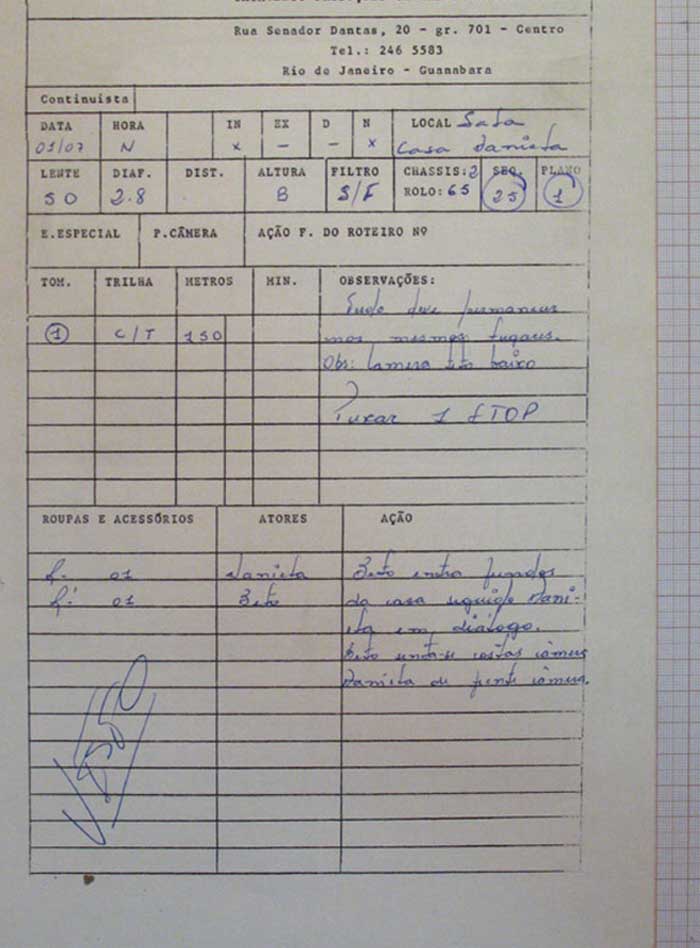 Rua Senador Dantas, 20 - gr. 701 - Centro
Tel.: 246 5583
Rio de Janeiro - Guanabara
Continuista
DATA HORA IN EX D N LOCAL Sala
01/07 N x - - x Casa Daniela
LENTE DIAF. DIST. ALTURA FILTRO CHASSIS: 2 SEQ. PLANO
50 2.8 B S/F ROLO: 65 25 1
E.ESPECIAL P.CÂMERA AÇÃO P. DO ROTEIRO Nº
TOM. TRILHA METROS MIN. OBSERVAÇÕES:
Tudo deve permanecer
1 C/T 150 nos mesmos lugares.
Obs: Camera baixo
Puxar 1 STOP
ROUPAS E ACESSÓRIOS ATORES AÇÃO
01 Daniela Beto entra
01 Beto da casa seguido Dani-
ela em diálogo.
Beto senta-se costas câmera
Daniela de frente câmera.